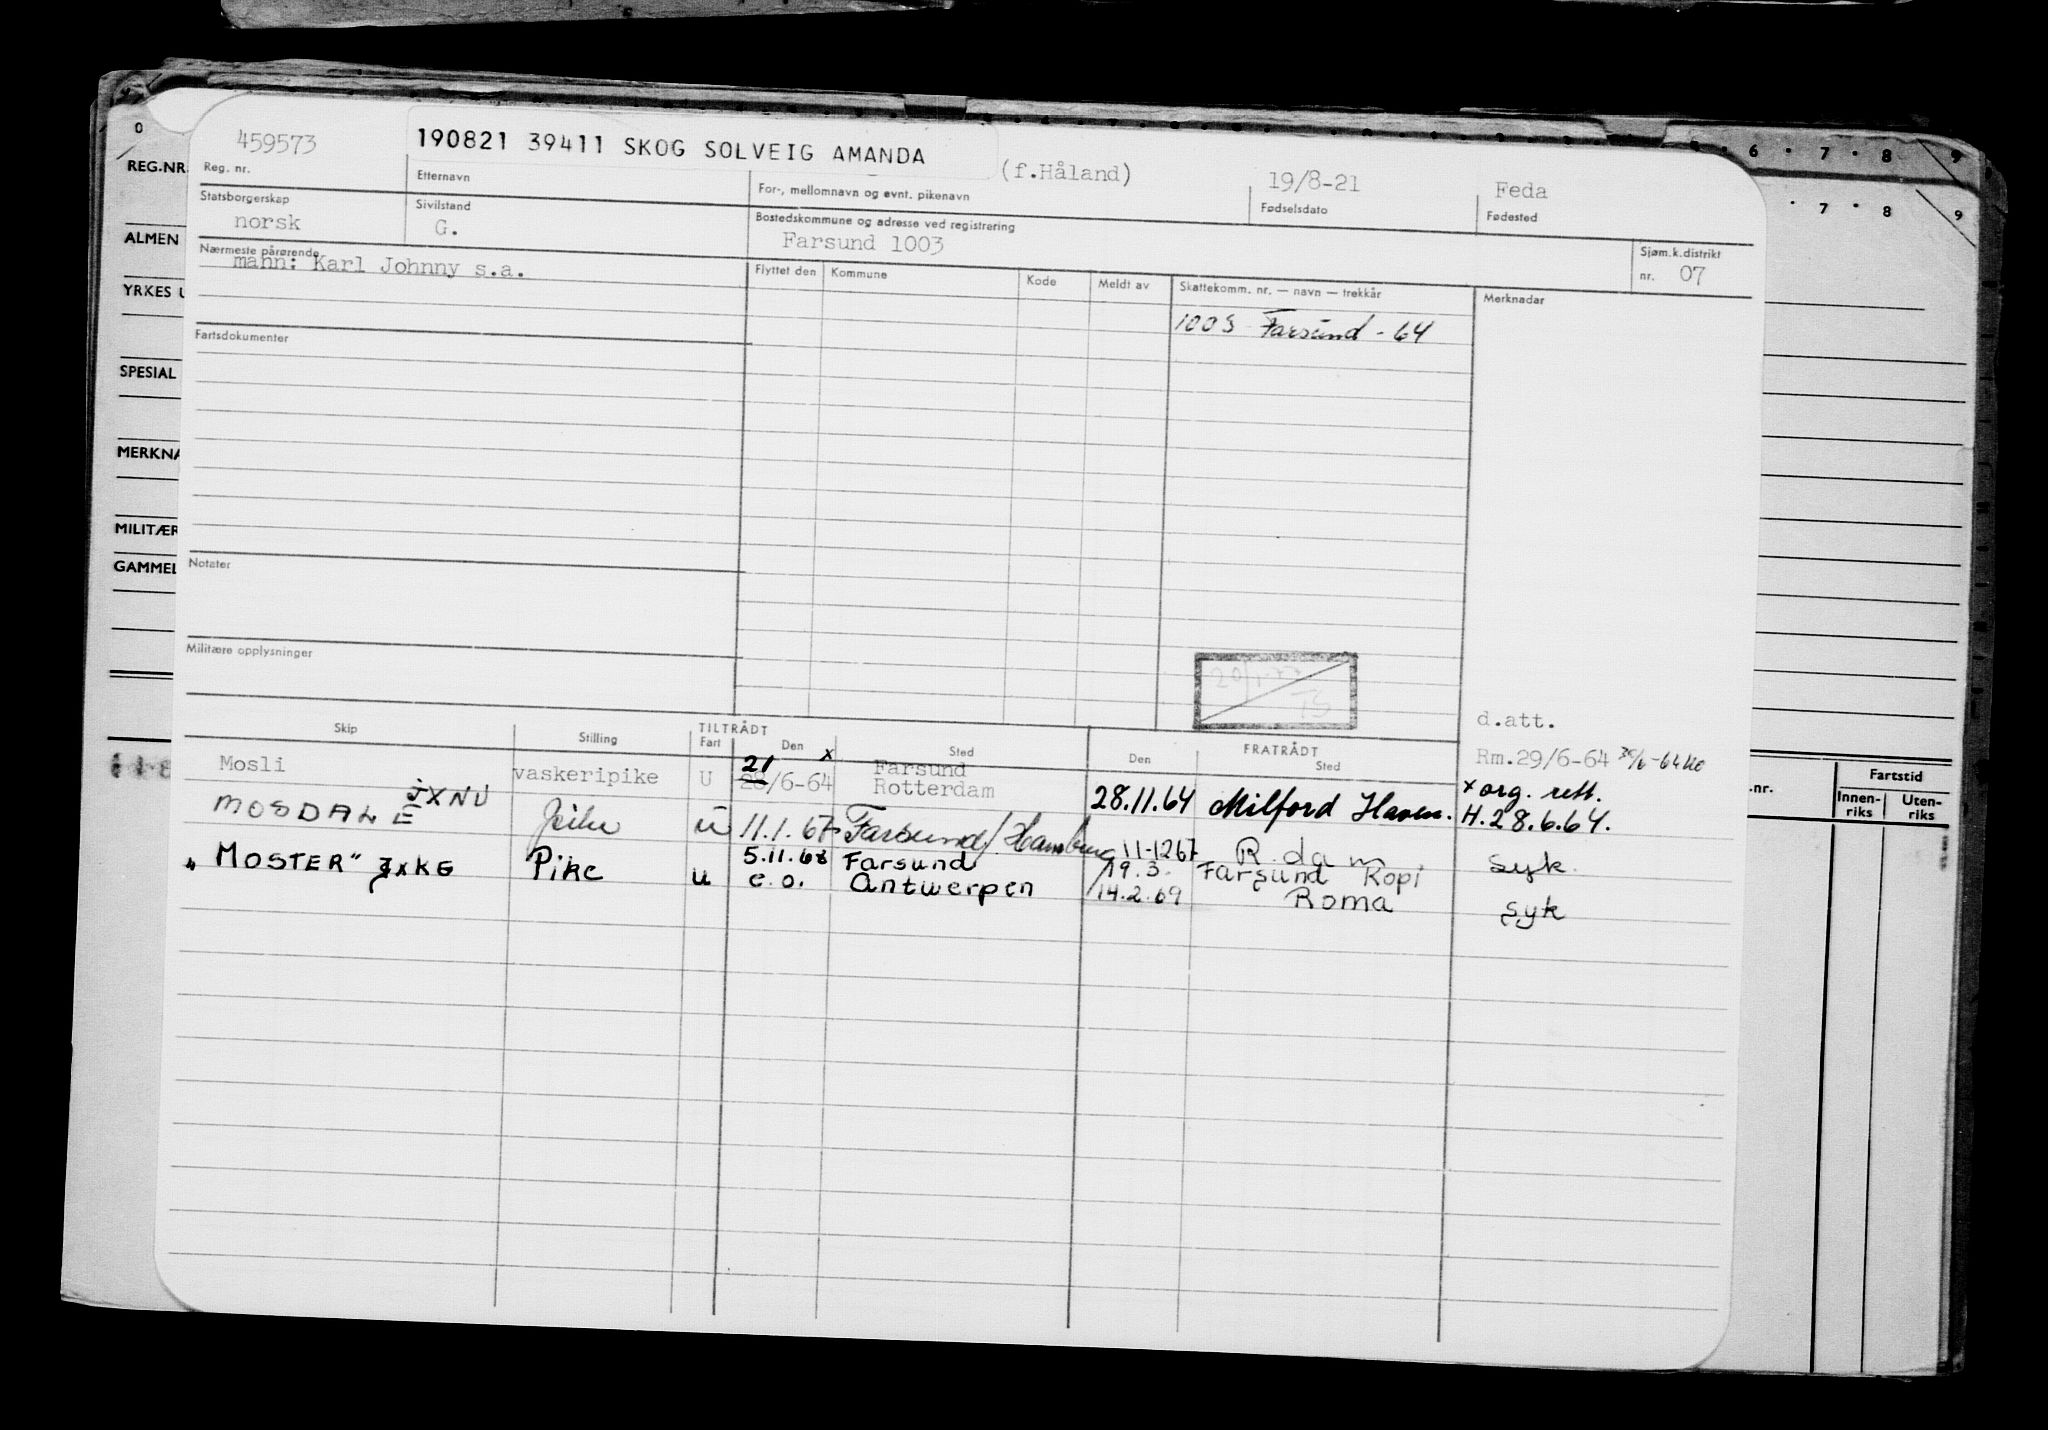 0
REG.NR.
6 · 7 · 8 9
7 · 8 9
ALMEN
YRKES U
SPESIAL
MERKNA
MILITÆR
GAMMEL
459573
190821 39411 SKOG SOLVEIG AMANDA
(f.Håland)
19/8-21
Feda
Reg. nr.
Etternavn
For-, mellomnavn og evnt. pikenavn
Fødselsdato
Fødested
Statsborgerskap
Sivilstand
Bostedskommune og adresse ved registrering
norsk
G.
Farsund 1003
Sjøm.k.distrikt
nr. 07
Nærmeste pårørende
mann: Karl Johnny s.a.
Flyttet den
Kommune
Kode
Meldt av
Skattekomm. nr. — navn — trekkår
Merknadar
1003 Farsund - 64
Fartsdokumenter
Notater
Militære opplysninger
d.att.
Skip
Stilling
TILTRÅDT
Fart
Den
Sted
FRATRÅDT
Den
Sted
Mosli
vaskeripike
U
21 x
28/6-64
Farsund
Rotterdam
28.11.64
Milford Haven.
Rm.29/6-64 30/6-64
x org. rett.
H.28.6.64.
MOSDALE JXNU
Pike
U
11.1.67
Farsund/Hamburg
11-1267
R.dam
syk.
"MOSTER" JXKG
Pike
u
5.11.68
e.o.
Farsund
Antwerpen
19.3.
14.2.69
Farsund Kopi
Roma
syk
.nr.
Fartstid
Innen-
riks
Uten-
riks